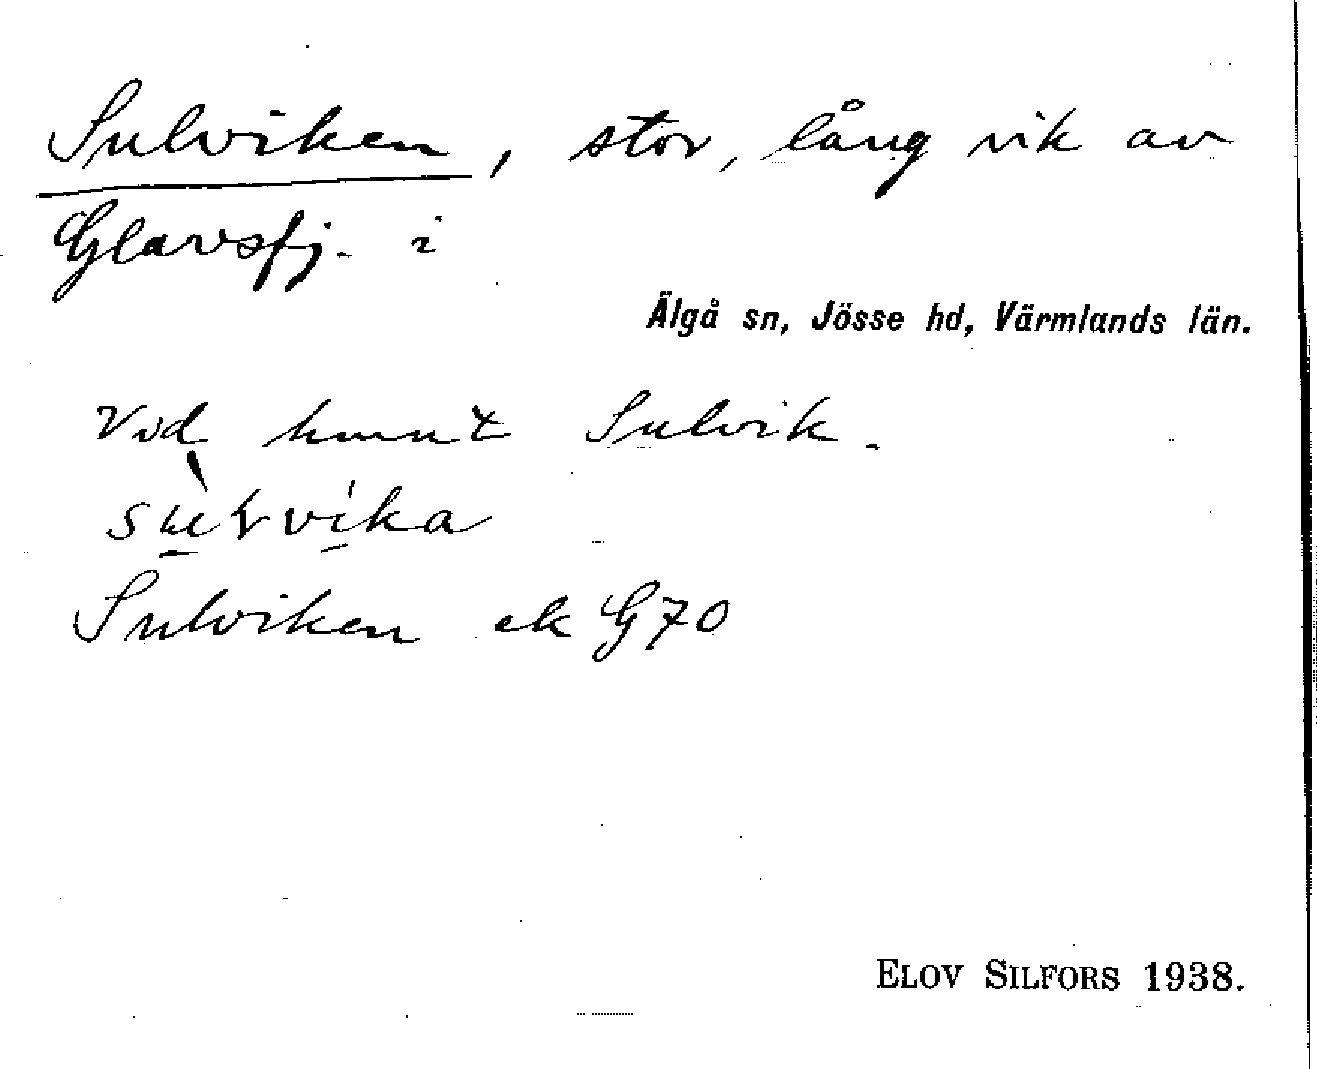 Sulviken, stor, lång vik av
Glavsfj. i
Älgå sn, Jösse hd, Värmlands län.
Vid hmnt Sulvik.
Sulviken ek G70
ELOV SILFORS 1938.